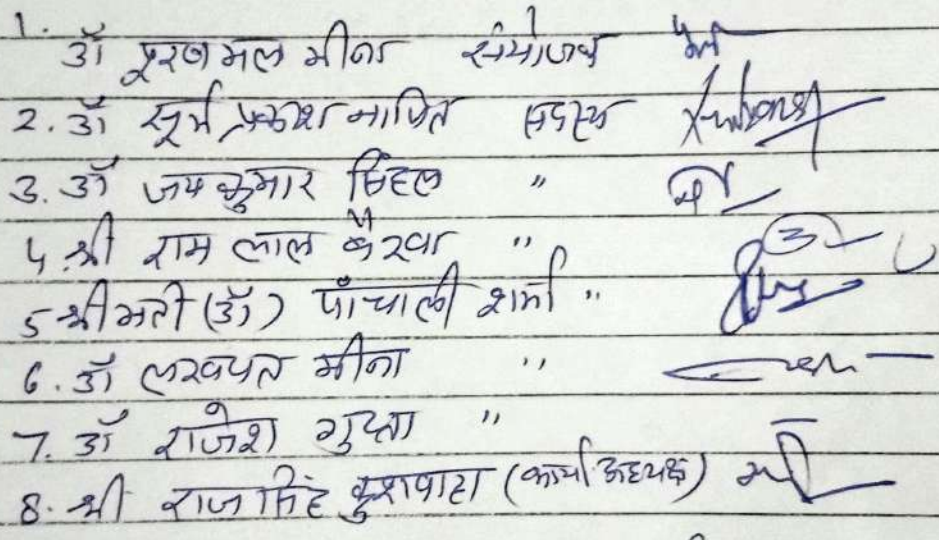 1.
डॉ पूरण मल मीना संयोजक
2. डॉ सूर्य प्रकाश नापित सदस्य
3. डॉ जय कुमार सिंहल "
4. श्री राम लाल बैरवा "
5 श्रीमती (डॉ) पाँचाली शर्मा "
6. डॉ लखपत मीना "
7. डॉ राजेश गुप्ता "
8. श्री राज सिंह (कार्या अध्यक्ष)